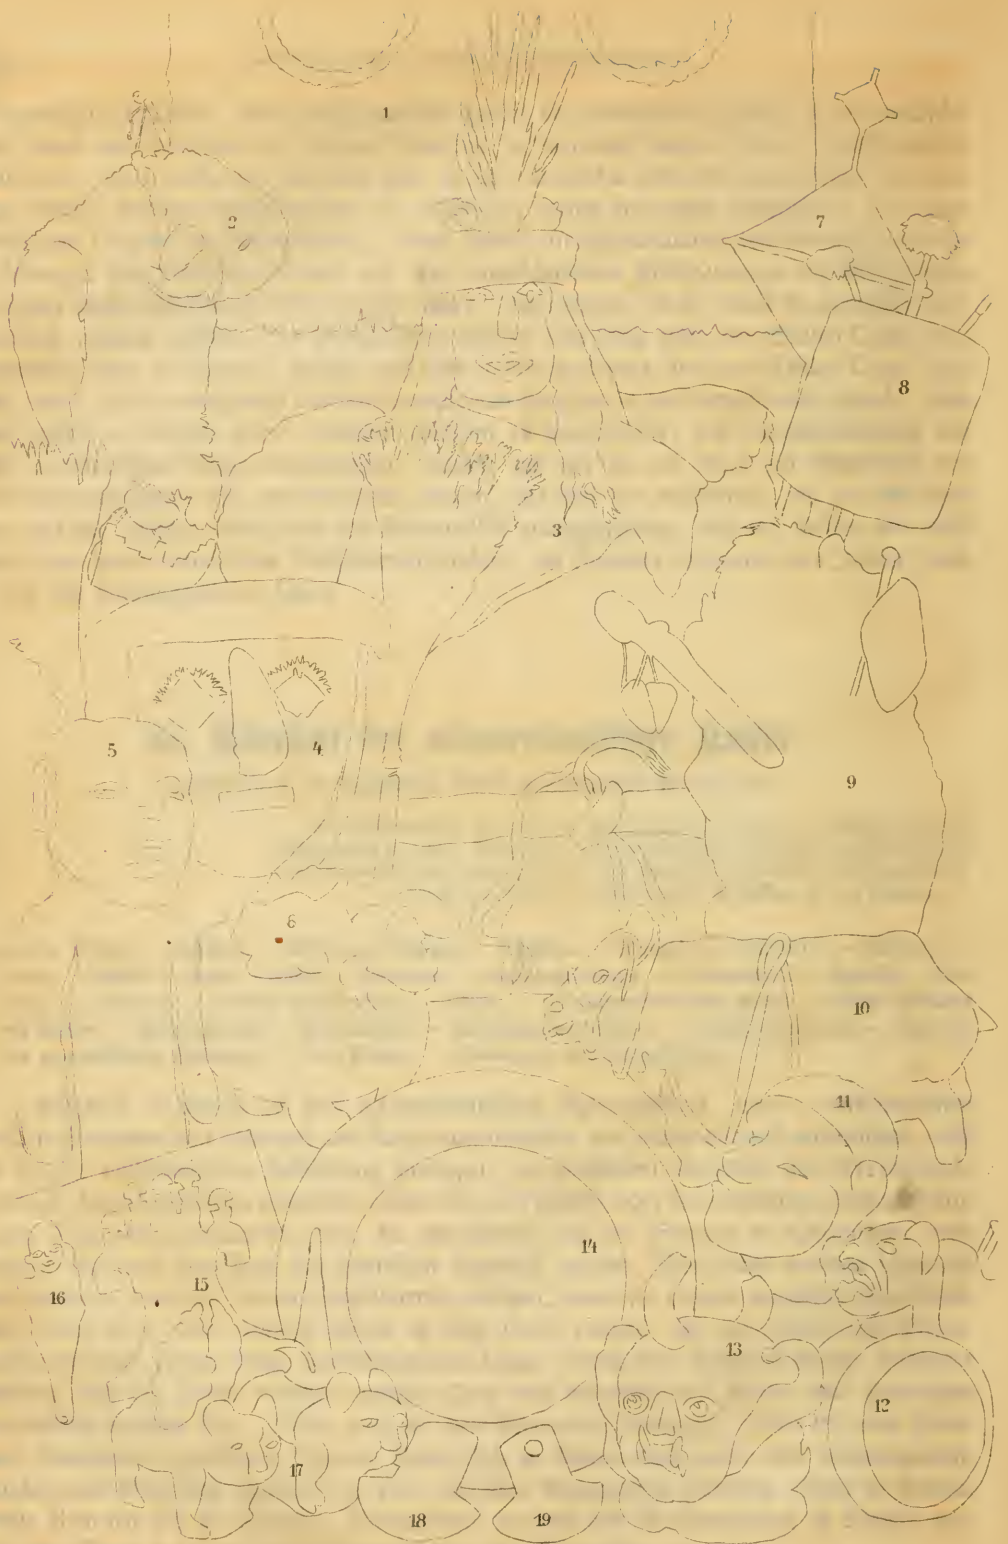 1
2
7
8
3
5
4
9
6
10
11
14
15
16
13
12
17
18
19